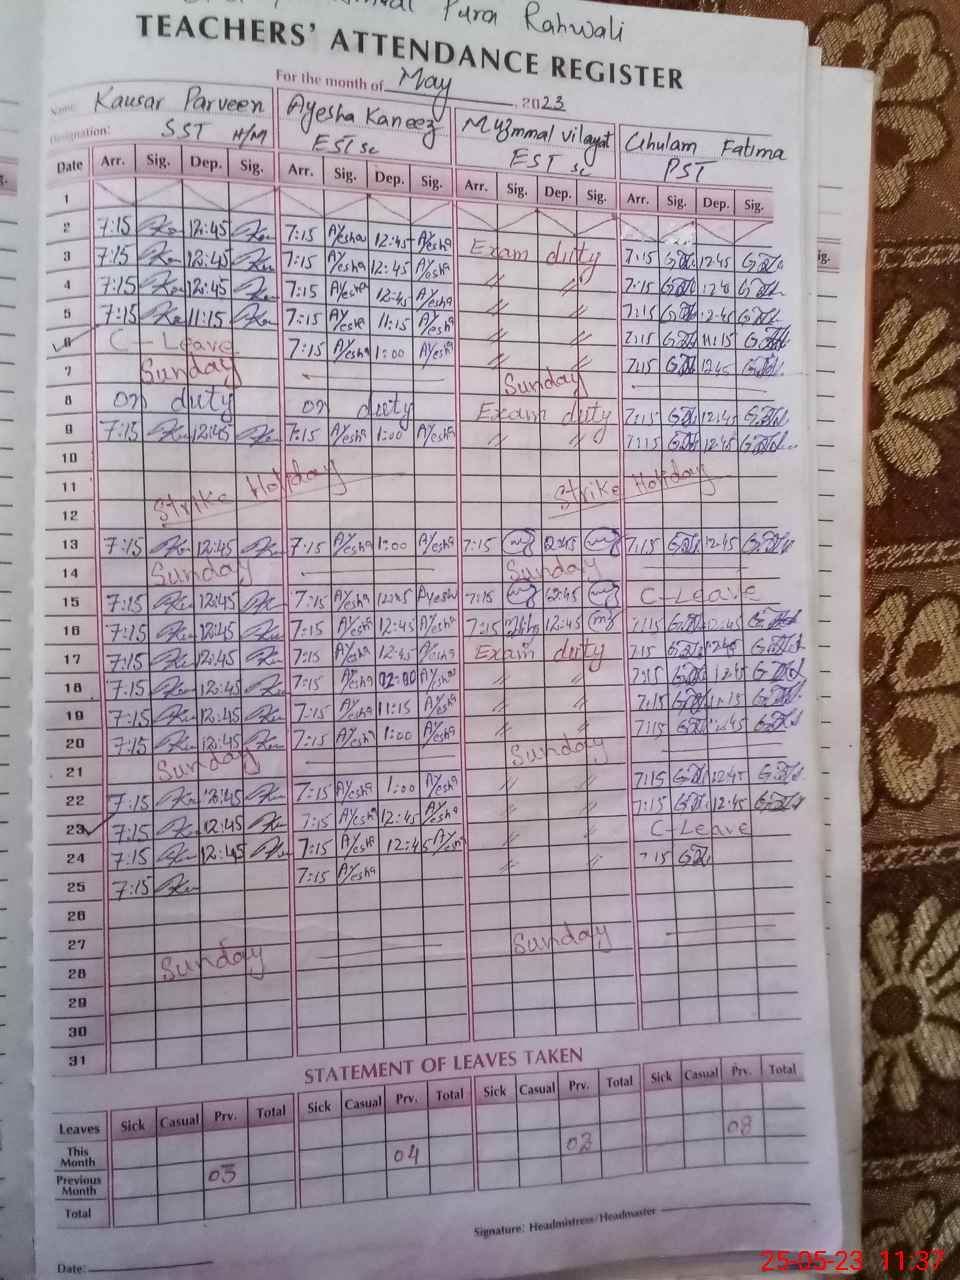 Pura Rahwali
TEACHERS' ATTENDANCE REGISTER
For the month of May, 2023
Name: Kausar Parveen Ayesha Kaneez Muzmmal vilayat Ghulam Fatima
Designation: SST H/M EST sc EST sc PST
Date Arr. Sig. Dep. Sig. Arr. Sig. Dep. Sig. Arr. Sig. Dep. Sig. Arr. Sig. Dep. Sig.
1
2 7:15 12:45 7:15 Ayesha 12:45 Ayesha Exam duty 7:15 12:45
3 7:15 12:45 7:15 Ayesha 12:45 Ayesha 〃 〃 7:15
4 7:15 12:45 7:15 Ayesha 12:45 Ayesha 〃 〃 7:15 12:45
5 7:15 11:15 7:15 Ayesha 11:15 Ayesha 〃 〃 7:15 11:15
6 C-Leave 7:15 Ayesha 1:00 Ayesha 〃 〃 7:15 12:45
7 Sunday Sunday
8 on duty on duty Exam duty 7:15 12:45
9 7:15 12:45 7:15 Ayesha 1:00 Ayesha 〃 〃 7:15 12:45
10
11 Strike Holiday Strike Holiday
12
13 7:15 12:45 7:15 Ayesha 1:00 Ayesha 7:15 12:45 7:15 12:45
14 Sunday Sunday
15 7:15 12:45 7:15 Ayesha 12:45 Ayesha 7:15 12:45 C-Leave
16 7:15 12:45 7:15 Ayesha 12:45 Ayesha 7:15 12:45 7:15 12:45
17 7:15 12:45 7:15 Ayesha 12:45 Ayesha Exam duty 7:15 12:45
18 7:15 12:45 7:15 Ayesha Ayesha 〃 〃 7:15 12:45
19 7:15 12:45 7:15 Ayesha 11:15 Ayesha 〃 〃 7:15 11:15
20 7:15 12:45 7:15 Ayesha 1:00 Ayesha 〃 〃 7:15 12:45
21 Sunday Sunday
22 7:15 12:45 7:15 Ayesha 1:00 Ayesha 〃 〃 7:15 12:45
23 7:15 12:45 7:15 Ayesha 12:45 Ayesha 〃 〃 7:15 12:45
24 7:15 12:45 7:15 Ayesha 12:45 Ayesha 〃 〃 C-Leave
25 7:15 7:15 Ayesha 〃 〃 7:15
26
27
28 Sunday Sunday
29
30
31
STATEMENT OF LEAVES TAKEN
Leaves Sick Casual Prv. Total Sick Casual Prv. Total Sick Casual Prv. Total Sick Casual Prv. Total
This Month
Previous Month 03 04 02 08
Total
Signature: Headmistress/Headmaster
Date:
25-05-23 11:37